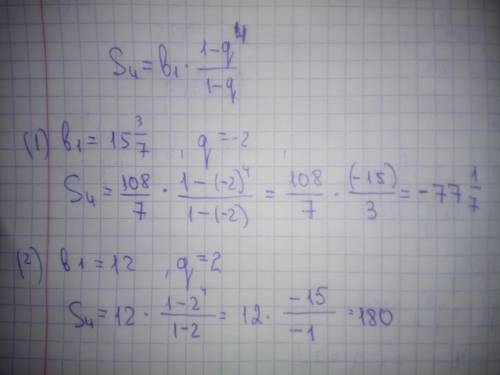 S₄ = b₁ · (1-q⁴)/(1-q)
(1) b₁ = 15 3/7 , q = -2
S₄ = 108/7 · (1-(-2)⁴)/(1-(-2)) = 108/7 · (-15)/3 = -77 1/7
(2) b₁ = 12 , q = 2
S₄ = 12 · (1-2⁴)/(1-2) = 12 · -15/-1 = 180